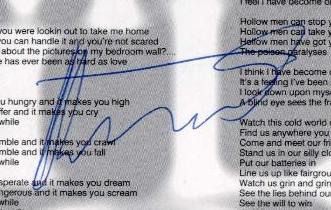 you were lookin out to take me home
you can handle it and you're not scared
about the pictures on my bedroom wall?....
e has ever been as hard as love
u hungry and it makes you high
ffer and it makes you cry
while
mble and it makes you crawl
mble and it makes you fall
while
sperate and it makes you dream
ngerous and it makes you scream
while
I feel I have become
Hollow men can stop
Hollow men can take y
Hollow men have got
The poison paralyses
I think I have become
It's a feeling I've been
I look down upon myse
A blind eye sees the fr
Watch this cold world
Find us anywhere you
Come and meet our fr
Stand us in our silly cl
Put our batteries in
Line us up like fairgrou
Watch us grin and grip
See the lies behind our
See the will to win